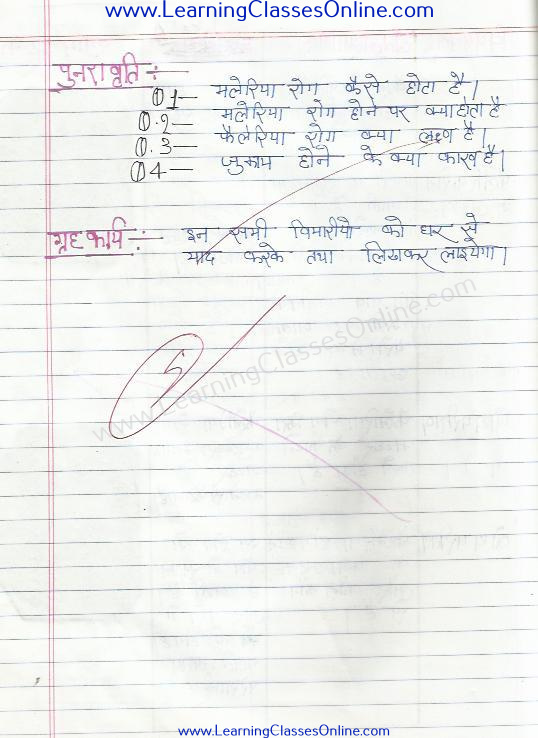 www.LearningClassesOnline.com
पुनरावृति :-
Q1— मलेरिया रोग कैसे होता है।
Q.2— मलेरिया रोग होने पर क्या होता है
Q.3— फैलेरिया रोग क्या लक्षण है।
Q4— जुकाम होने के क्या कारण है।
ग्रह कार्य :- इन सभी विमारीयो को घर से
याद करके तथा लिखकर लाइयेगा।
www.LearningClassesOnline.com
www.LearningClassesOnline.com